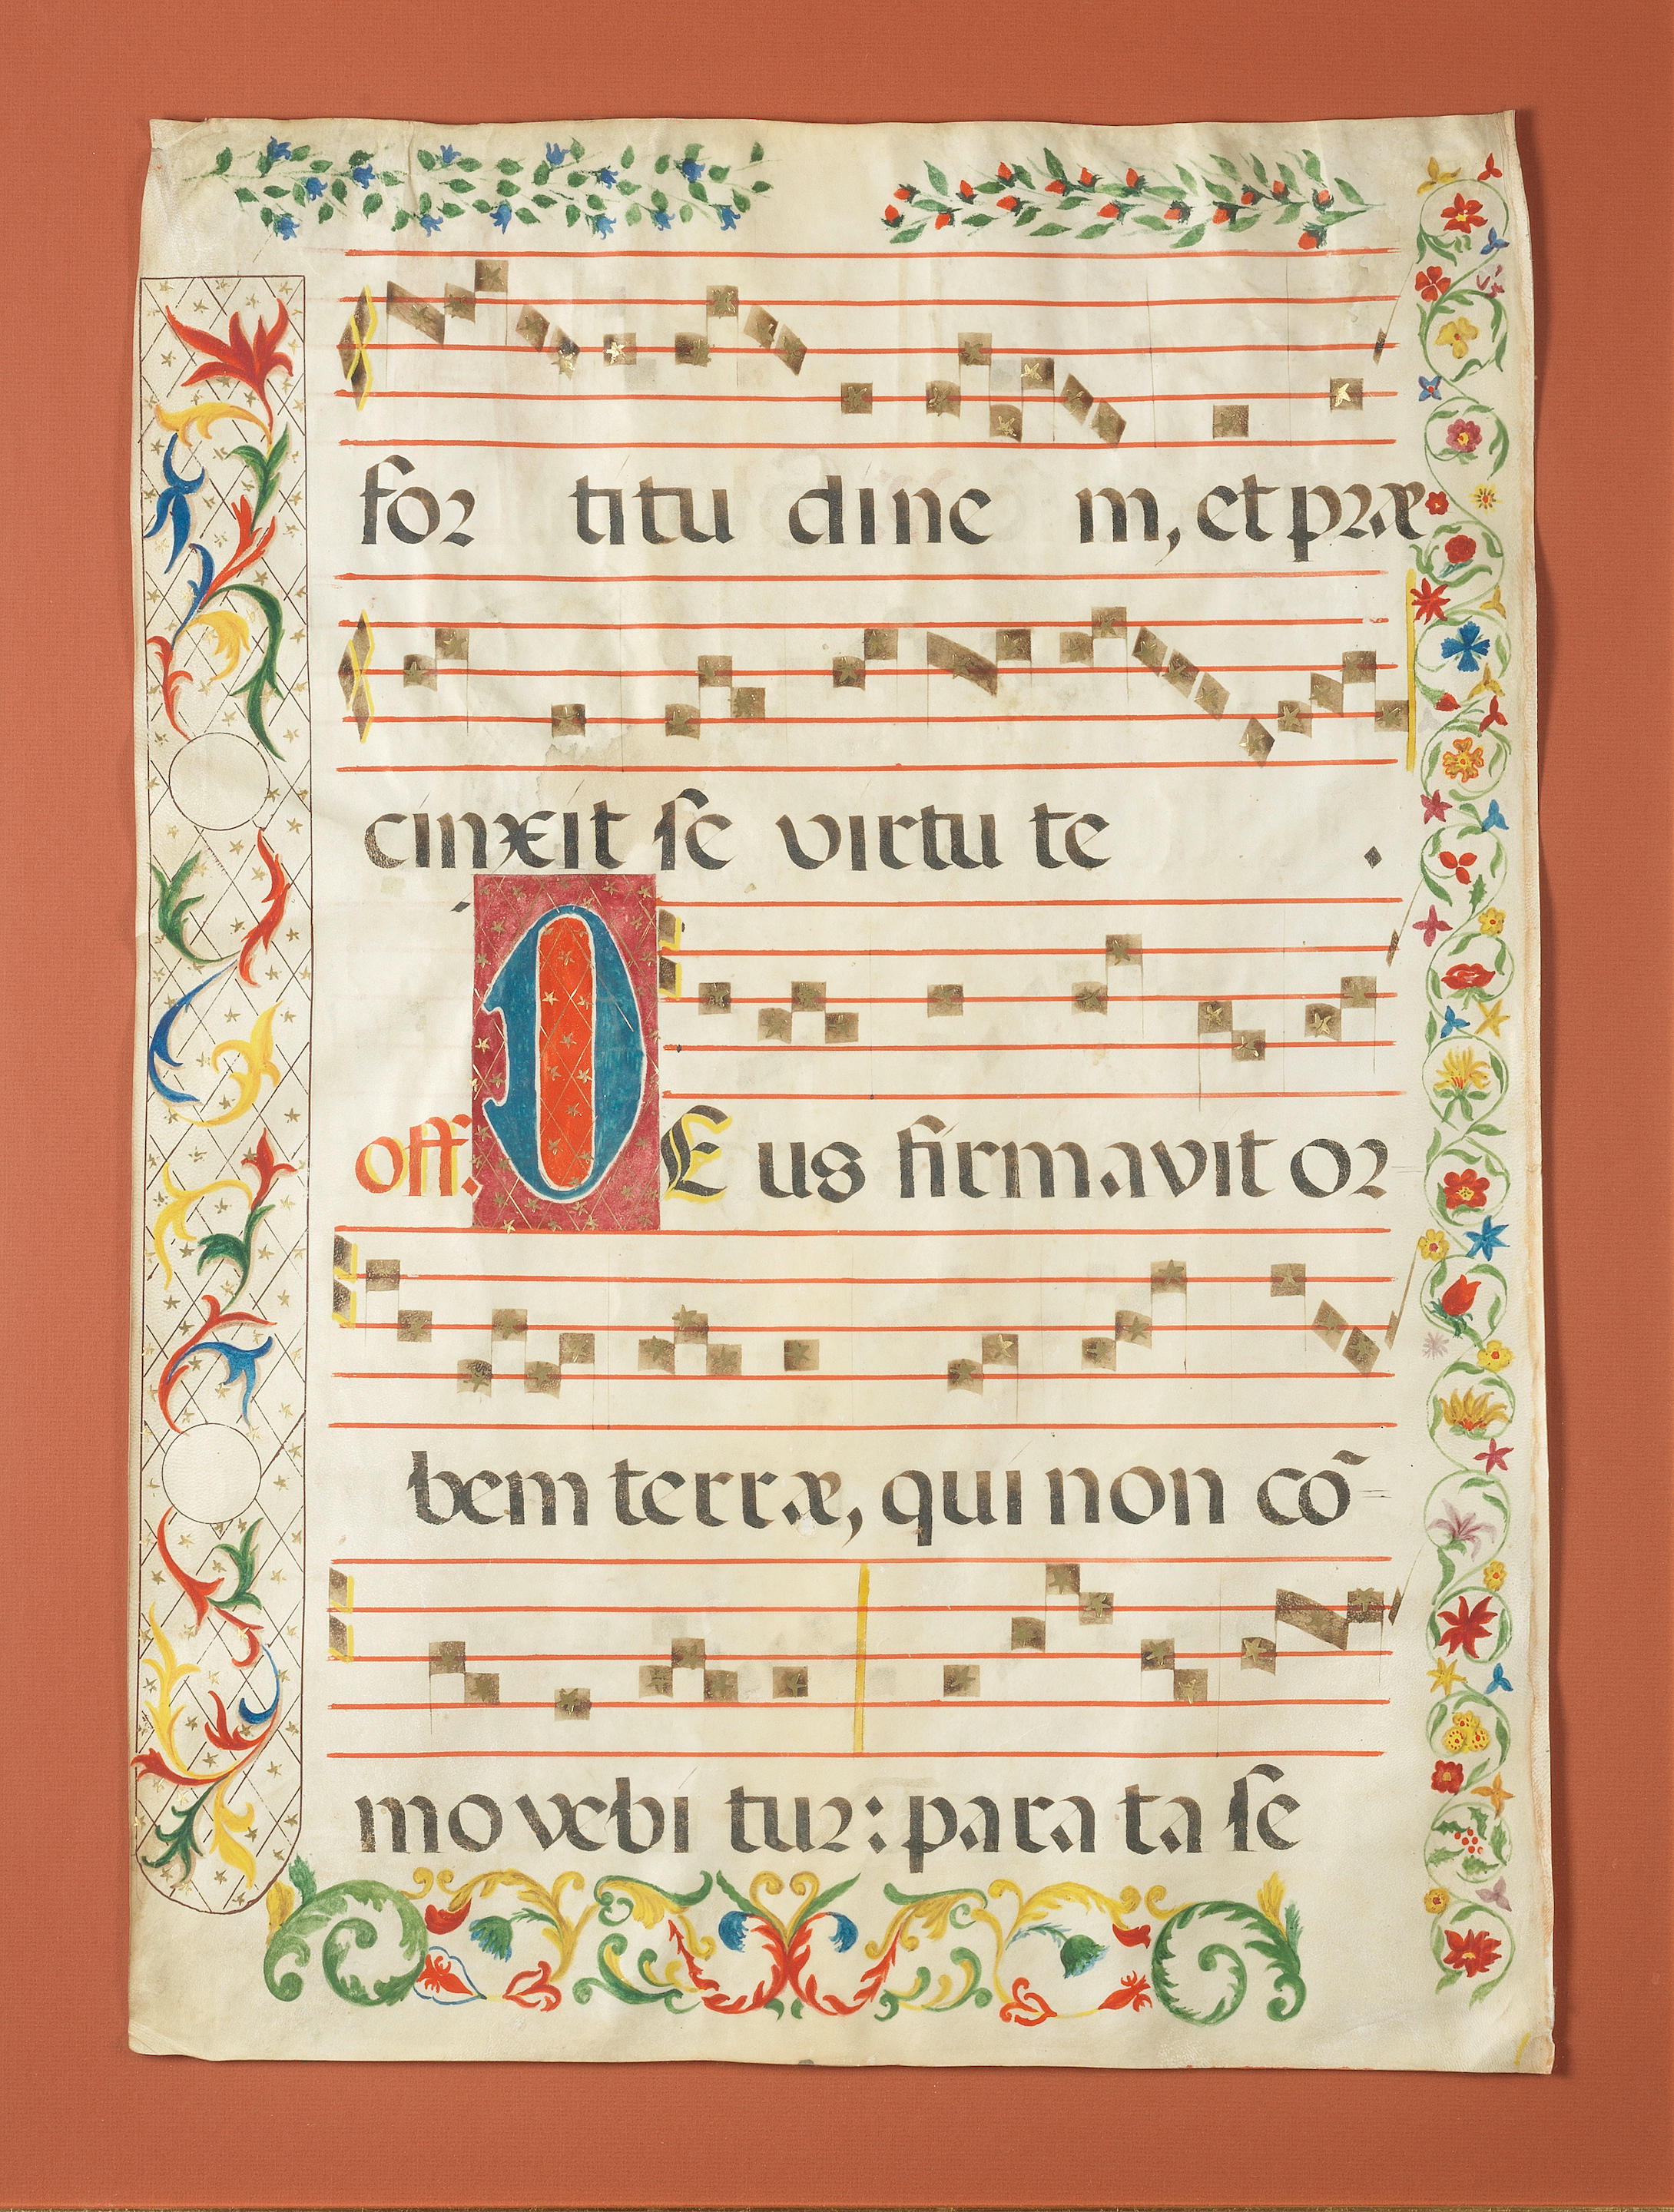 for titu dine m, et præ
cinxit se virtu te
off. DE us firmavit or
bem terræ, qui non cō
mo vebi tur: para ta se